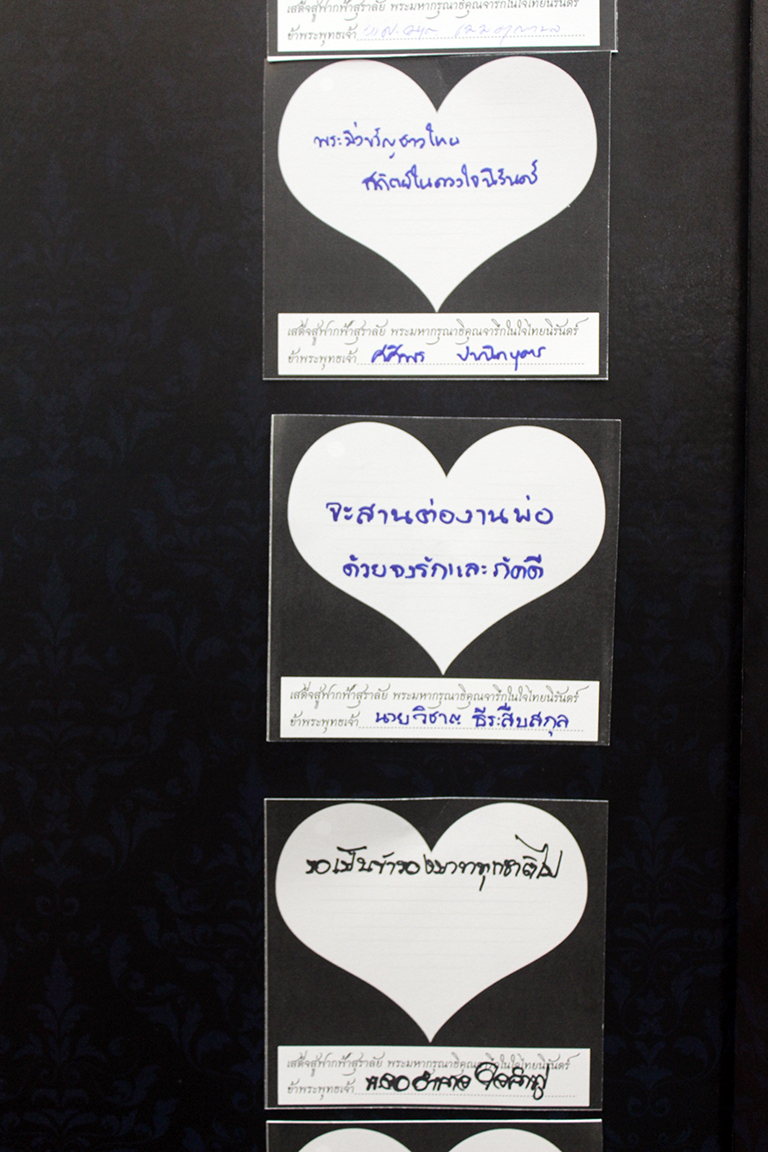 เสด็จสู่ฟากฟ้าสุราลัย พระมหากรุณาธิคุณจารึกในใจไทยนิรันดร์
ข้าพระพุทธเจ้า
พระมิ่งขวัญชาวไทย
สถิตย์ในดวงใจนิรันดร์
เสด็จสู่ฟากฟ้าสุราลัย พระมหากรุณาธิคุณจารึกในใจไทยนิรันดร์
ข้าพระพุทธเจ้า
จะสานต่องานพ่อ
ด้วยจงรักและภักดี
เสด็จสู่ฟากฟ้าสุราลัย พระมหากรุณาธิคุณจารึกในใจไทยนิรันดร์
ข้าพระพุทธเจ้า นายวิชาญ ธีระสืบสกุล
ขอเป็นข้ารองบาททุกชาติไป
เสด็จสู่ฟากฟ้าสุราลัย พระมหากรุณาธิคุณจารึกในใจไทยนิรันดร์
ข้าพระพุทธเจ้า